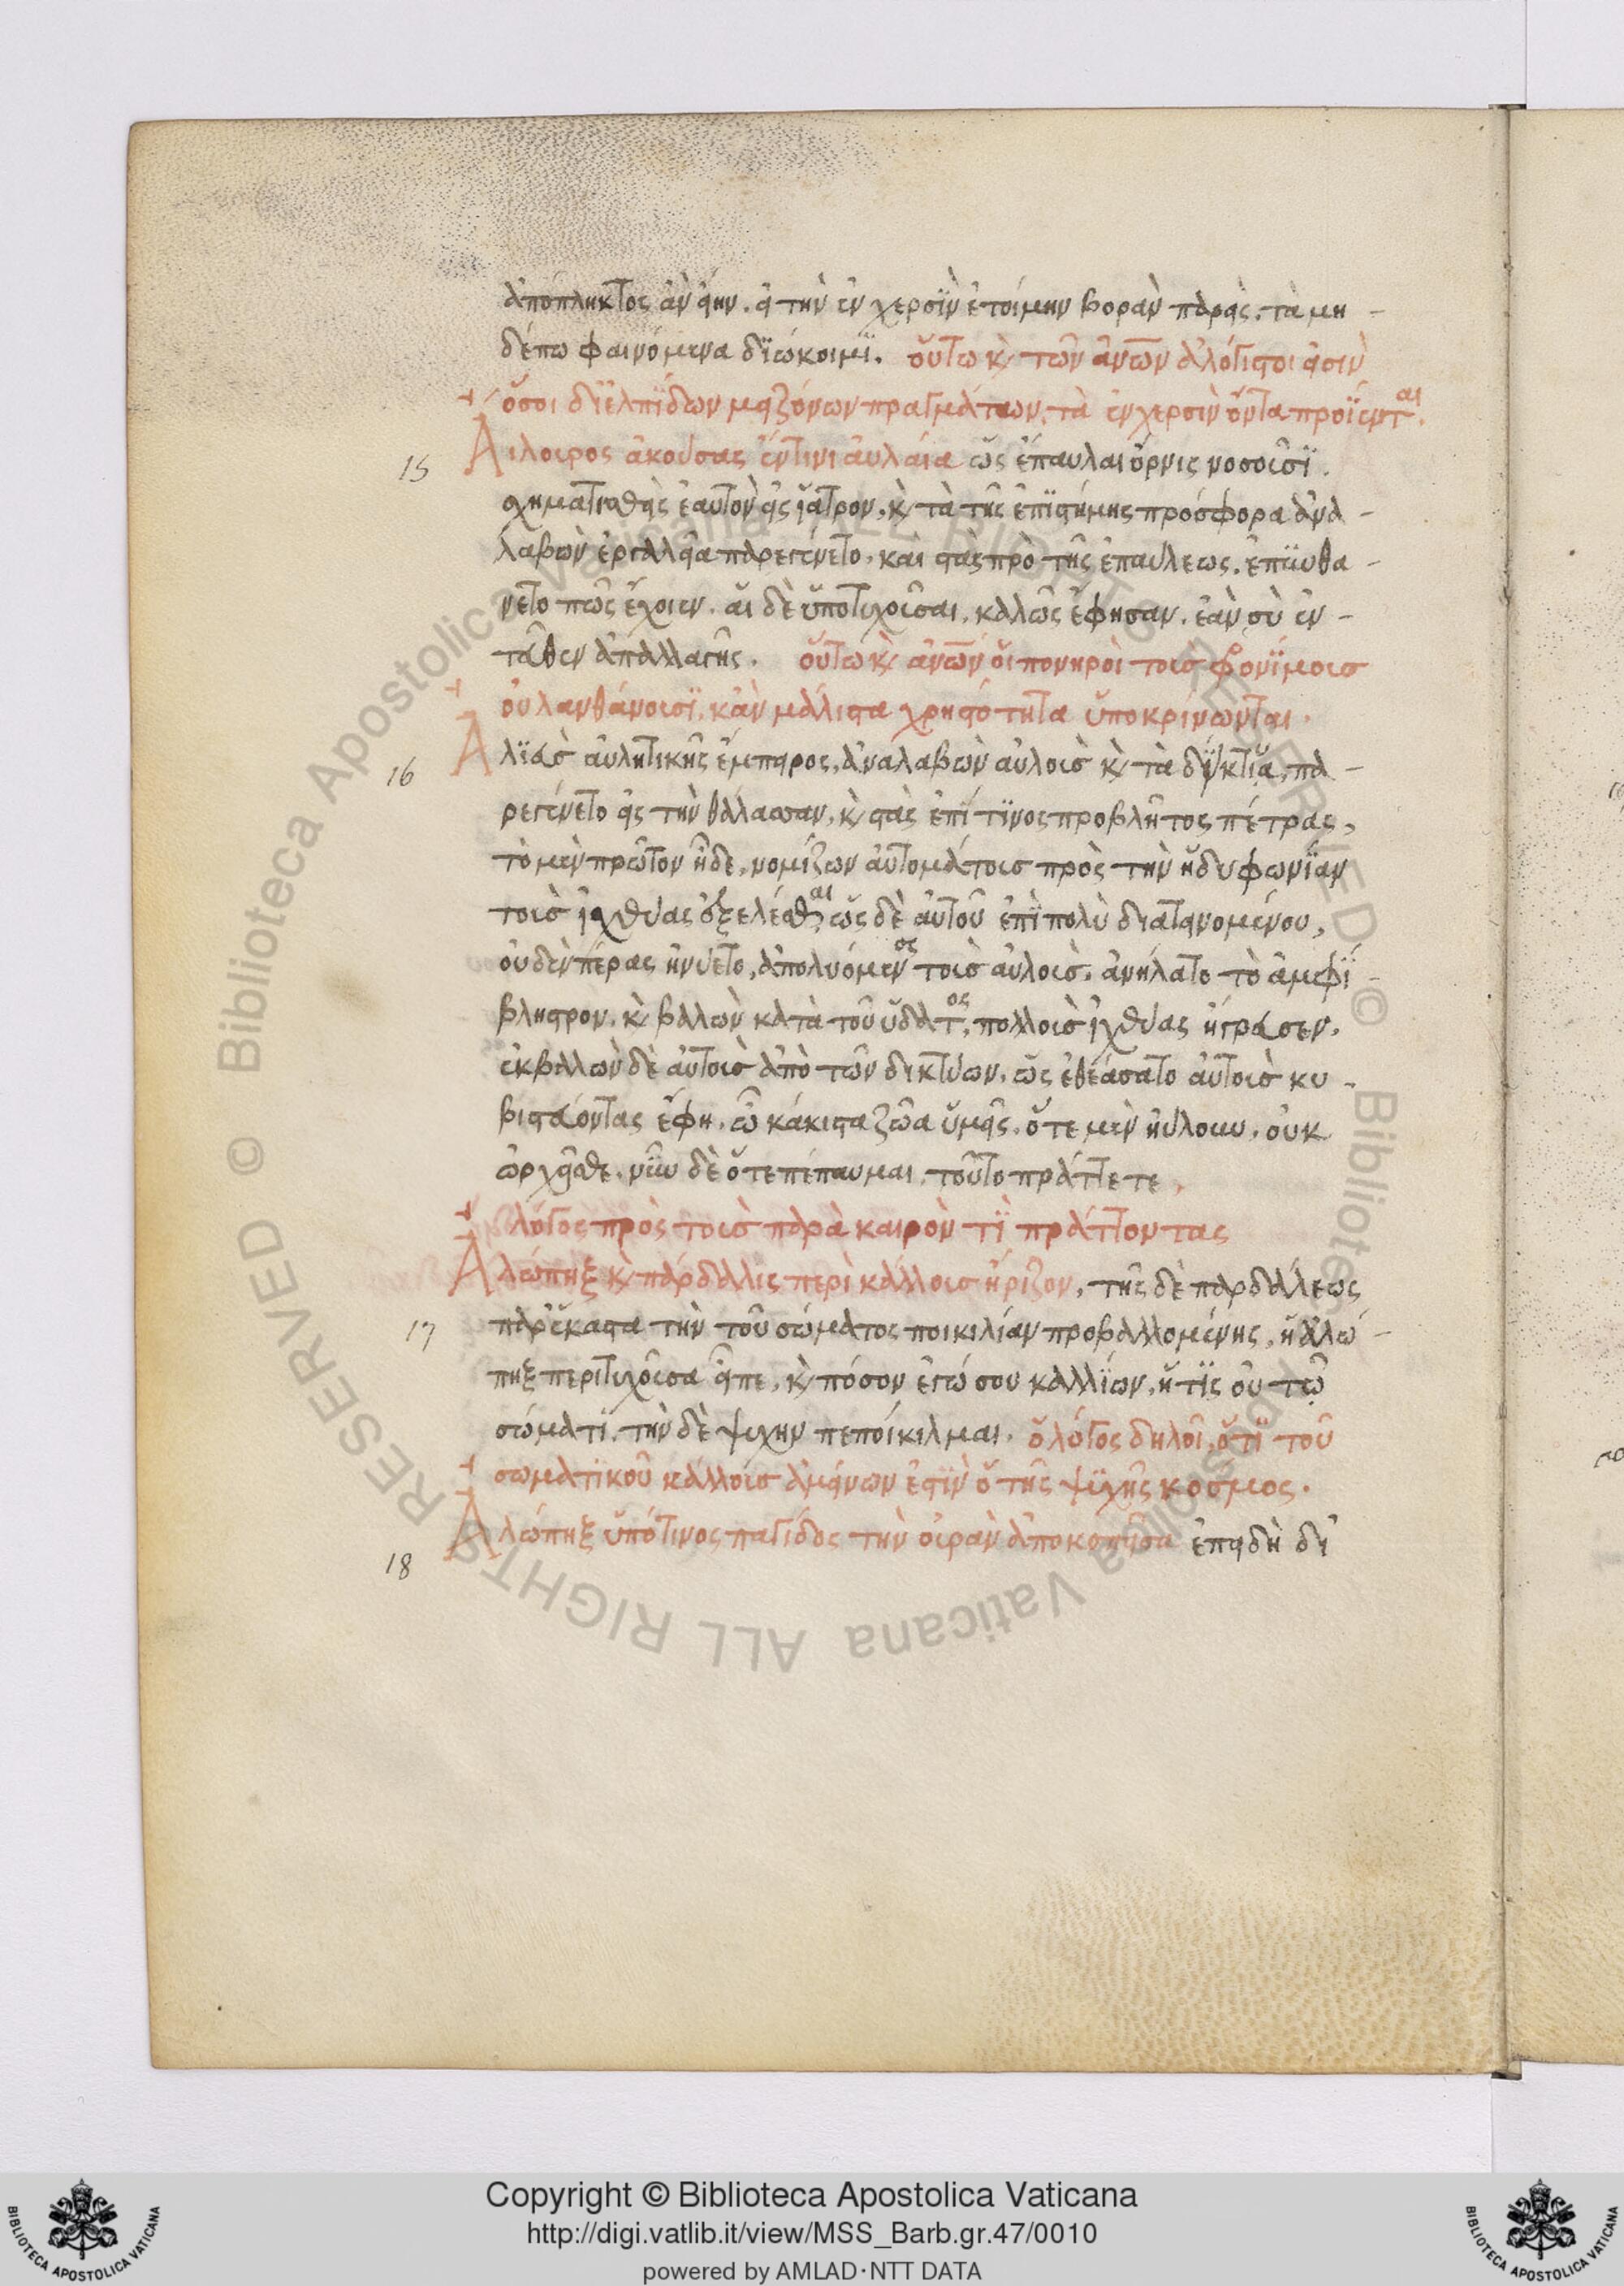 ἀπόπληκτος ἂν εἴην. εἰ τὴν ἐν χερσὶν ἑτοίμην βορὰν παρεὶς, τὰ μη-
δέπω φαινόμενα διώκοιμι. οὕτω κ τῶν ἀνων ἀλόγιστοι εἰσιν
ὅσοι δι' ἐλπίδων μειζόνων πραγμάτων, τὰ ἐν χερσὶν ὄντα προΐενται.
15 Αἴλουρος ἀκούσας ἔν τινι αὐλαία ὡς ἐπαυλαι ὄρνις νοσοῦσι.
σχηματισθεὶς ἑαυτὸν εἰς ἰατρον, κ τὰ τῆς ἐπιστήμης πρόσφορα ἀνα-
λαβὼν ἐργαλεῖα παρεγένετο, καὶ στὰς πρὸ τῆς ἐπαυλεως, ἐπυνθα-
νετο πῶς ἔχοιεν. αἱ δὲ ὑποτυχοῦσαι, καλῶς ἔφησαν, ἐὰν σὺ ἐν-
ταῦθεν ἀπαλλαγῆς. οὕτω κ ἀνων οἱ πονηροὶ τοὺσ φρονίμουσ
οὐ λανθάνουσι, κἀν μάλιστα χρηστότητα ὑποκρίνωνται.
16 Ἁλιεὺσ αὐλητικῆς ἔμπειρος, ἀναλαβὼν αὐλοὺσ κ τὰ δίκτυα, πα-
ρεγένετο εἰς τὴν θάλασσαν, κ στὰς ἐπί τινος προβλῆτος πέτρας,
τὸ μὲν πρῶτον ᾖδε, νομίζων αὐτομάτουσ πρὸς τὴν ἡδυφωνίαν
τοὺσ ἰχθύας ἐξελέσθαι, ὡς δὲ αὐτοῦ ἐπὶ πολὺ διατεινομένου,
οὐδὲν πέρας ἠνύετο, ἀπολυόμενος τοὺσ αὐλοὺσ, ἀνήλατο τὸ ἀμφί-
βληστρον, κ βαλὼν κατὰ τοῦ ὕδατος, πολλοὺσ ἰχθύας ἤγρευσεν,
ἐκβαλὼν δὲ αὐτοὺσ ἀπὸ τῶν δικτύων, ὡς ἐθεάσατο αὐτοὺσ κυ-
βιστεύοντας ἔφη, ὦ κάκιστα ζῶα ὑμεῖς, ὅτε μὲν ηὔλουν, οὐκ
ὠρχεῖσθε, νῦν δὲ ὅτε πέπαυμαι, τοῦτο πράττετε.
λόγος πρὸς τοὺσ παρὰ καιρὸν τὶ πράττοντας
Ἀλώπηξ κ πάρδαλις περὶ κάλλουσ ἤριζον, τῆς δὲ παρδάλεως
17 παρ' ἕκαστα τὴν τοῦ σώματος ποικιλίαν προβαλλομένης, ἡ ἀλώ-
πηξ περιτυχοῦσα εἶπε, κ πόσον ἐγώ σου καλλίων, ἥτις οὐ τῶ
σώματι, τὴν δὲ ψυχην πεποίκιλμαι. ὁ λόγος δηλοῖ, ὅτι τοῦ
σωματικοῦ κάλλουσ ἀμείνων ἐστὶν ὁ τῆς ψυχῆς κόσμος.
18 Ἀλώπηξ ὑπό τινος παγίδος τὴν οὐρὰν ἀποκοπεῖσα ἐπειδὴ δι'
Copyright © Biblioteca Apostolica Vaticana
http://digi.vatlib.it/view/MSS_Barb.gr.47/0010
powered by AMLAD·NTT DATA